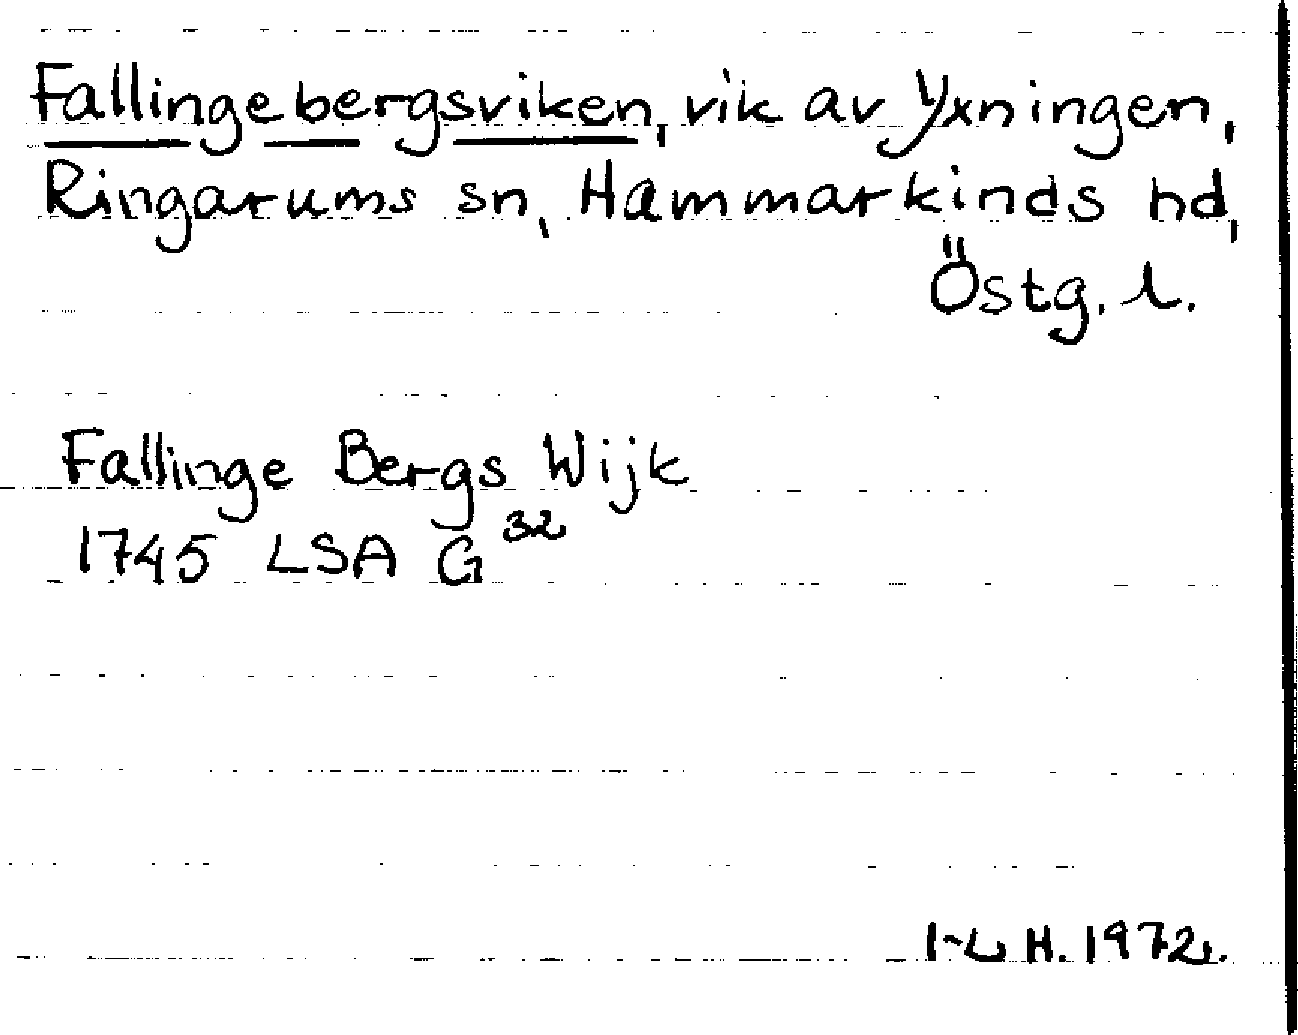 Fallingebergsviken, vik av Yxningen,
Ringarums sn, Hammarkinds hd,
Östg. l.
Fallinge Bergs Wijk
1745 LSA G 32
I-L H. 1972.